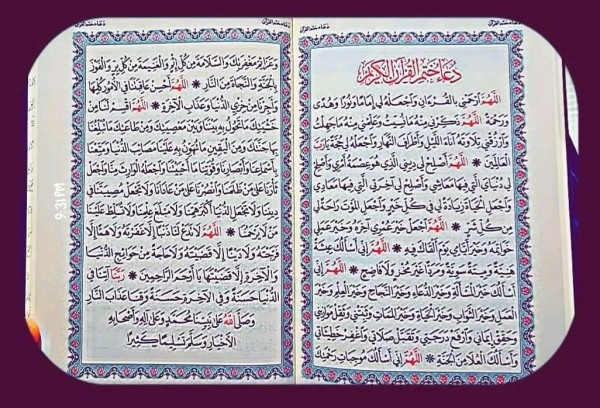 دعاء ختم القرآن
دُعَاءُ خَتْمِ الْقُرْآنِ الْكَرِيمِ
اللَّهُمَّ ارْحَمْنِي بِالْقُرْءَانِ وَاجْعَلْهُ لِي إِمَامًا وَنُورًا وَهُدًى
وَرَحْمَةً * اللَّهُمَّ ذَكِّرْنِي مِنْهُ مَا نَسِيتُ وَعَلِّمْنِي مِنْهُ مَا جَهِلْتُ
وَارْزُقْنِي تِلَاوَتَهُ آنَاءَ اللَّيْلِ وَأَطْرَافَ النَّهَارِ وَاجْعَلْهُ لِي حُجَّةً يَارَبَّ
الْعَالَمِينَ * اللَّهُمَّ أَصْلِحْ لِي دِينِي الَّذِي هُوَ عِصْمَةُ أَمْرِي وَأَصْلِحْ
لِي دُنْيَايَ الَّتِي فِيهَا مَعَاشِي وَأَصْلِحْ لِي آخِرَتِي الَّتِي فِيهَا مَعَادِي
وَاجْعَلِ الْحَيَاةَ زِيَادَةً لِي فِي كُلِّ خَيْرٍ وَاجْعَلِ الْمَوْتَ رَاحَةً لِي
مِنْ كُلِّ شَرٍّ * اللَّهُمَّ اجْعَلْ خَيْرَ عُمْرِي آخِرَهُ وَخَيْرَ عَمَلِي
خَوَاتِمَهُ وَخَيْرَ أَيَّامِي يَوْمَ أَلْقَاكَ فِيهِ * اللَّهُمَّ إِنِّي أَسْأَلُكَ عِيشَةً
هَنِيَّةً وَمِيتَةً سَوِيَّةً وَمَرَدًّا غَيْرَ مُخْزٍ وَلَا فَاضِحٍ * اللَّهُمَّ إِنِّي
أَسْأَلُكَ خَيْرَ الْمَسْأَلَةِ وَخَيْرَ الدُّعَاءِ وَخَيْرَ النَّجَاحِ وَخَيْرَ الْعِلْمِ وَخَيْرَ
الْعَمَلِ وَخَيْرَ الثَّوَابِ وَخَيْرَ الْحَيَاةِ وَخَيْرَ الْمَمَاتِ وَثَبِّتْنِي وَثَقِّلْ مَوَازِينِي
وَحَقِّقْ إِيمَانِي وَارْفَعْ دَرَجَتِي وَتَقَبَّلْ صَلَاتِي وَاغْفِرْ خَطِيئَاتِي
وَأَسْأَلُكَ الْعُلَا مِنَ الْجَنَّةِ * اللَّهُمَّ إِنِّي أَسْأَلُكَ مُوجِبَاتِ رَحْمَتِكَ
دعاء ختم القرآن
وَعَزَائِمَ مَغْفِرَتِكَ وَالسَّلَامَةَ مِنْ كُلِّ إِثْمٍ وَالْغَنِيمَةَ مِنْ كُلِّ بِرٍّ وَالْفَوْزَ
بِالْجَنَّةِ وَالنَّجَاةَ مِنَ النَّارِ * اللَّهُمَّ أَحْسِنْ عَاقِبَتَنَا فِي الْأُمُورِ كُلِّهَا
وَأَجِرْنَا مِنْ خِزْيِ الدُّنْيَا وَعَذَابِ الْآخِرَةِ * اللَّهُمَّ اقْسِمْ لَنَا مِنْ
خَشْيَتِكَ مَا تَحُولُ بِهِ بَيْنَنَا وَبَيْنَ مَعْصِيَتِكَ وَمِنْ طَاعَتِكَ مَا تُبَلِّغُنَا
بِهَا جَنَّتَكَ وَمِنَ الْيَقِينِ مَا تُهَوِّنُ بِهِ عَلَيْنَا مَصَائِبَ الدُّنْيَا وَمَتِّعْنَا
بِأَسْمَاعِنَا وَأَبْصَارِنَا وَقُوَّتِنَا مَا أَحْيَيْتَنَا وَاجْعَلْهُ الْوَارِثَ مِنَّا وَاجْعَلْ
ثَأْرَنَا عَلَى مَنْ ظَلَمَنَا وَانْصُرْنَا عَلَى مَنْ عَادَانَا وَلَا تَجْعَلْ مُصِيبَتَنَا فِي
دِينِنَا وَلَا تَجْعَلِ الدُّنْيَا أَكْبَرَ هَمِّنَا وَلَا مَبْلَغَ عِلْمِنَا وَلَا تُسَلِّطْ عَلَيْنَا
مَنْ لَا يَرْحَمُنَا * اللَّهُمَّ لَا تَدَعْ لَنَا ذَنْبًا إِلَّا غَفَرْتَهُ وَلَا هَمًّا إِلَّا
فَرَّجْتَهُ وَلَا دَيْنًا إِلَّا قَضَيْتَهُ وَلَا حَاجَةً مِنْ حَوَائِجِ الدُّنْيَا
وَالْآخِرَةِ إِلَّا قَضَيْتَهَا يَا أَرْحَمَ الرَّاحِمِينَ * رَبَّنَا آتِنَا فِي
الدُّنْيَا حَسَنَةً وَفِي الْآخِرَةِ حَسَنَةً وَقِنَا عَذَابَ النَّارِ
وَصَلَّى اللَّهُ عَلَى نَبِيِّنَا مُحَمَّدٍ وَعَلَى آلِهِ وَأَصْحَابِهِ
الْأَخْيَارِ وَسَلَّمَ تَسْلِيمًا كَثِيرًا
9:31 PM